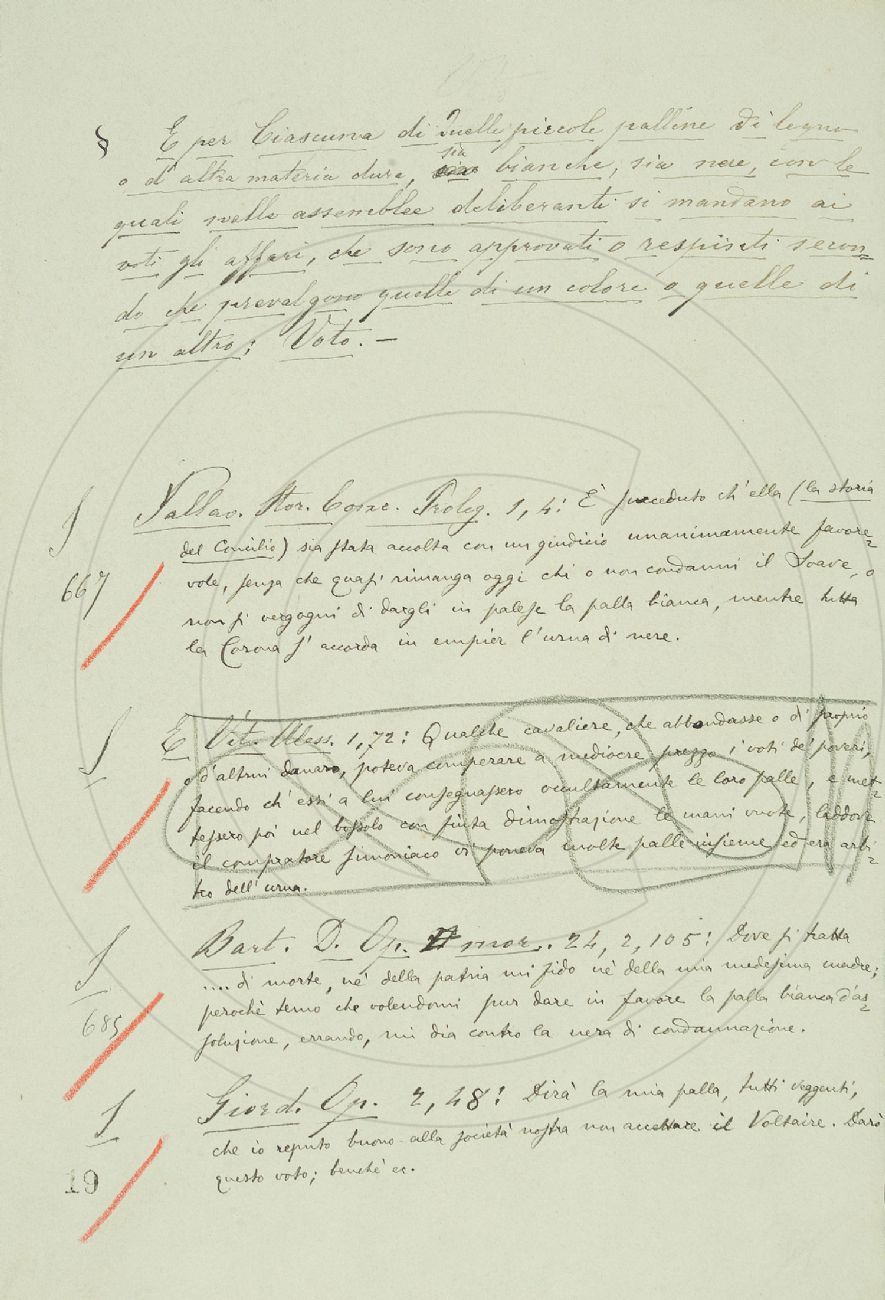 § E per Ciascuna di Quelle piccole palline di legno
o d'altra materia dura, sia bianche, sia nere, con le
quali nelle assemblee deliberanti si mandano ai
voti gli affari, che sono approvati o respinti secon=
do che prevalgono quelle di un colore o quelle di
un altro; Voto. —
Pallav. Stor. Conc. Prolog. 1, 4: È succeduto ch'ella (la storia
del Concilio) sia stata accolta con un giudicio unanimamente favore=
667 vole, senza che quasi rimanga oggi chi o non condanni il Soave, o
non si vergogni di dargli in palese la palla bianca, mentre tutta
la Corona s'accorda in empier l'urna di nere.
E Vit. Aless. 1, 72: Qualche cavaliere, che abbondasse o di proprio
o d'altrui danaro, poteva comperare a mediocre prezzo i voti de' poveri,
facendo ch'essi a lui consegnassero occultamente le loro palle, e met=
tessero poi nel bossolo con finta dimostrazione le mani vuote, laddove
il compratore simoniaco vi poneva molte palle insieme ed era arbi=
tro dell'urna.
Bart. D. Op. mor. 24, 2, 105: Dove si tratta
.... di morte, nè della patria mi fido nè della mia medesima madre;
685 perochè temo che volendomi pur dare in favore la palla bianca d'as=
soluzione, errando, mi dia contro la nera di condannazione.
Giord. Op. 2, 48: Dirà la mia palla, tutti veggenti,
che io reputo buono alla società nostra non accettare il Voltaire. Darò
19 questo voto; benchè ec.